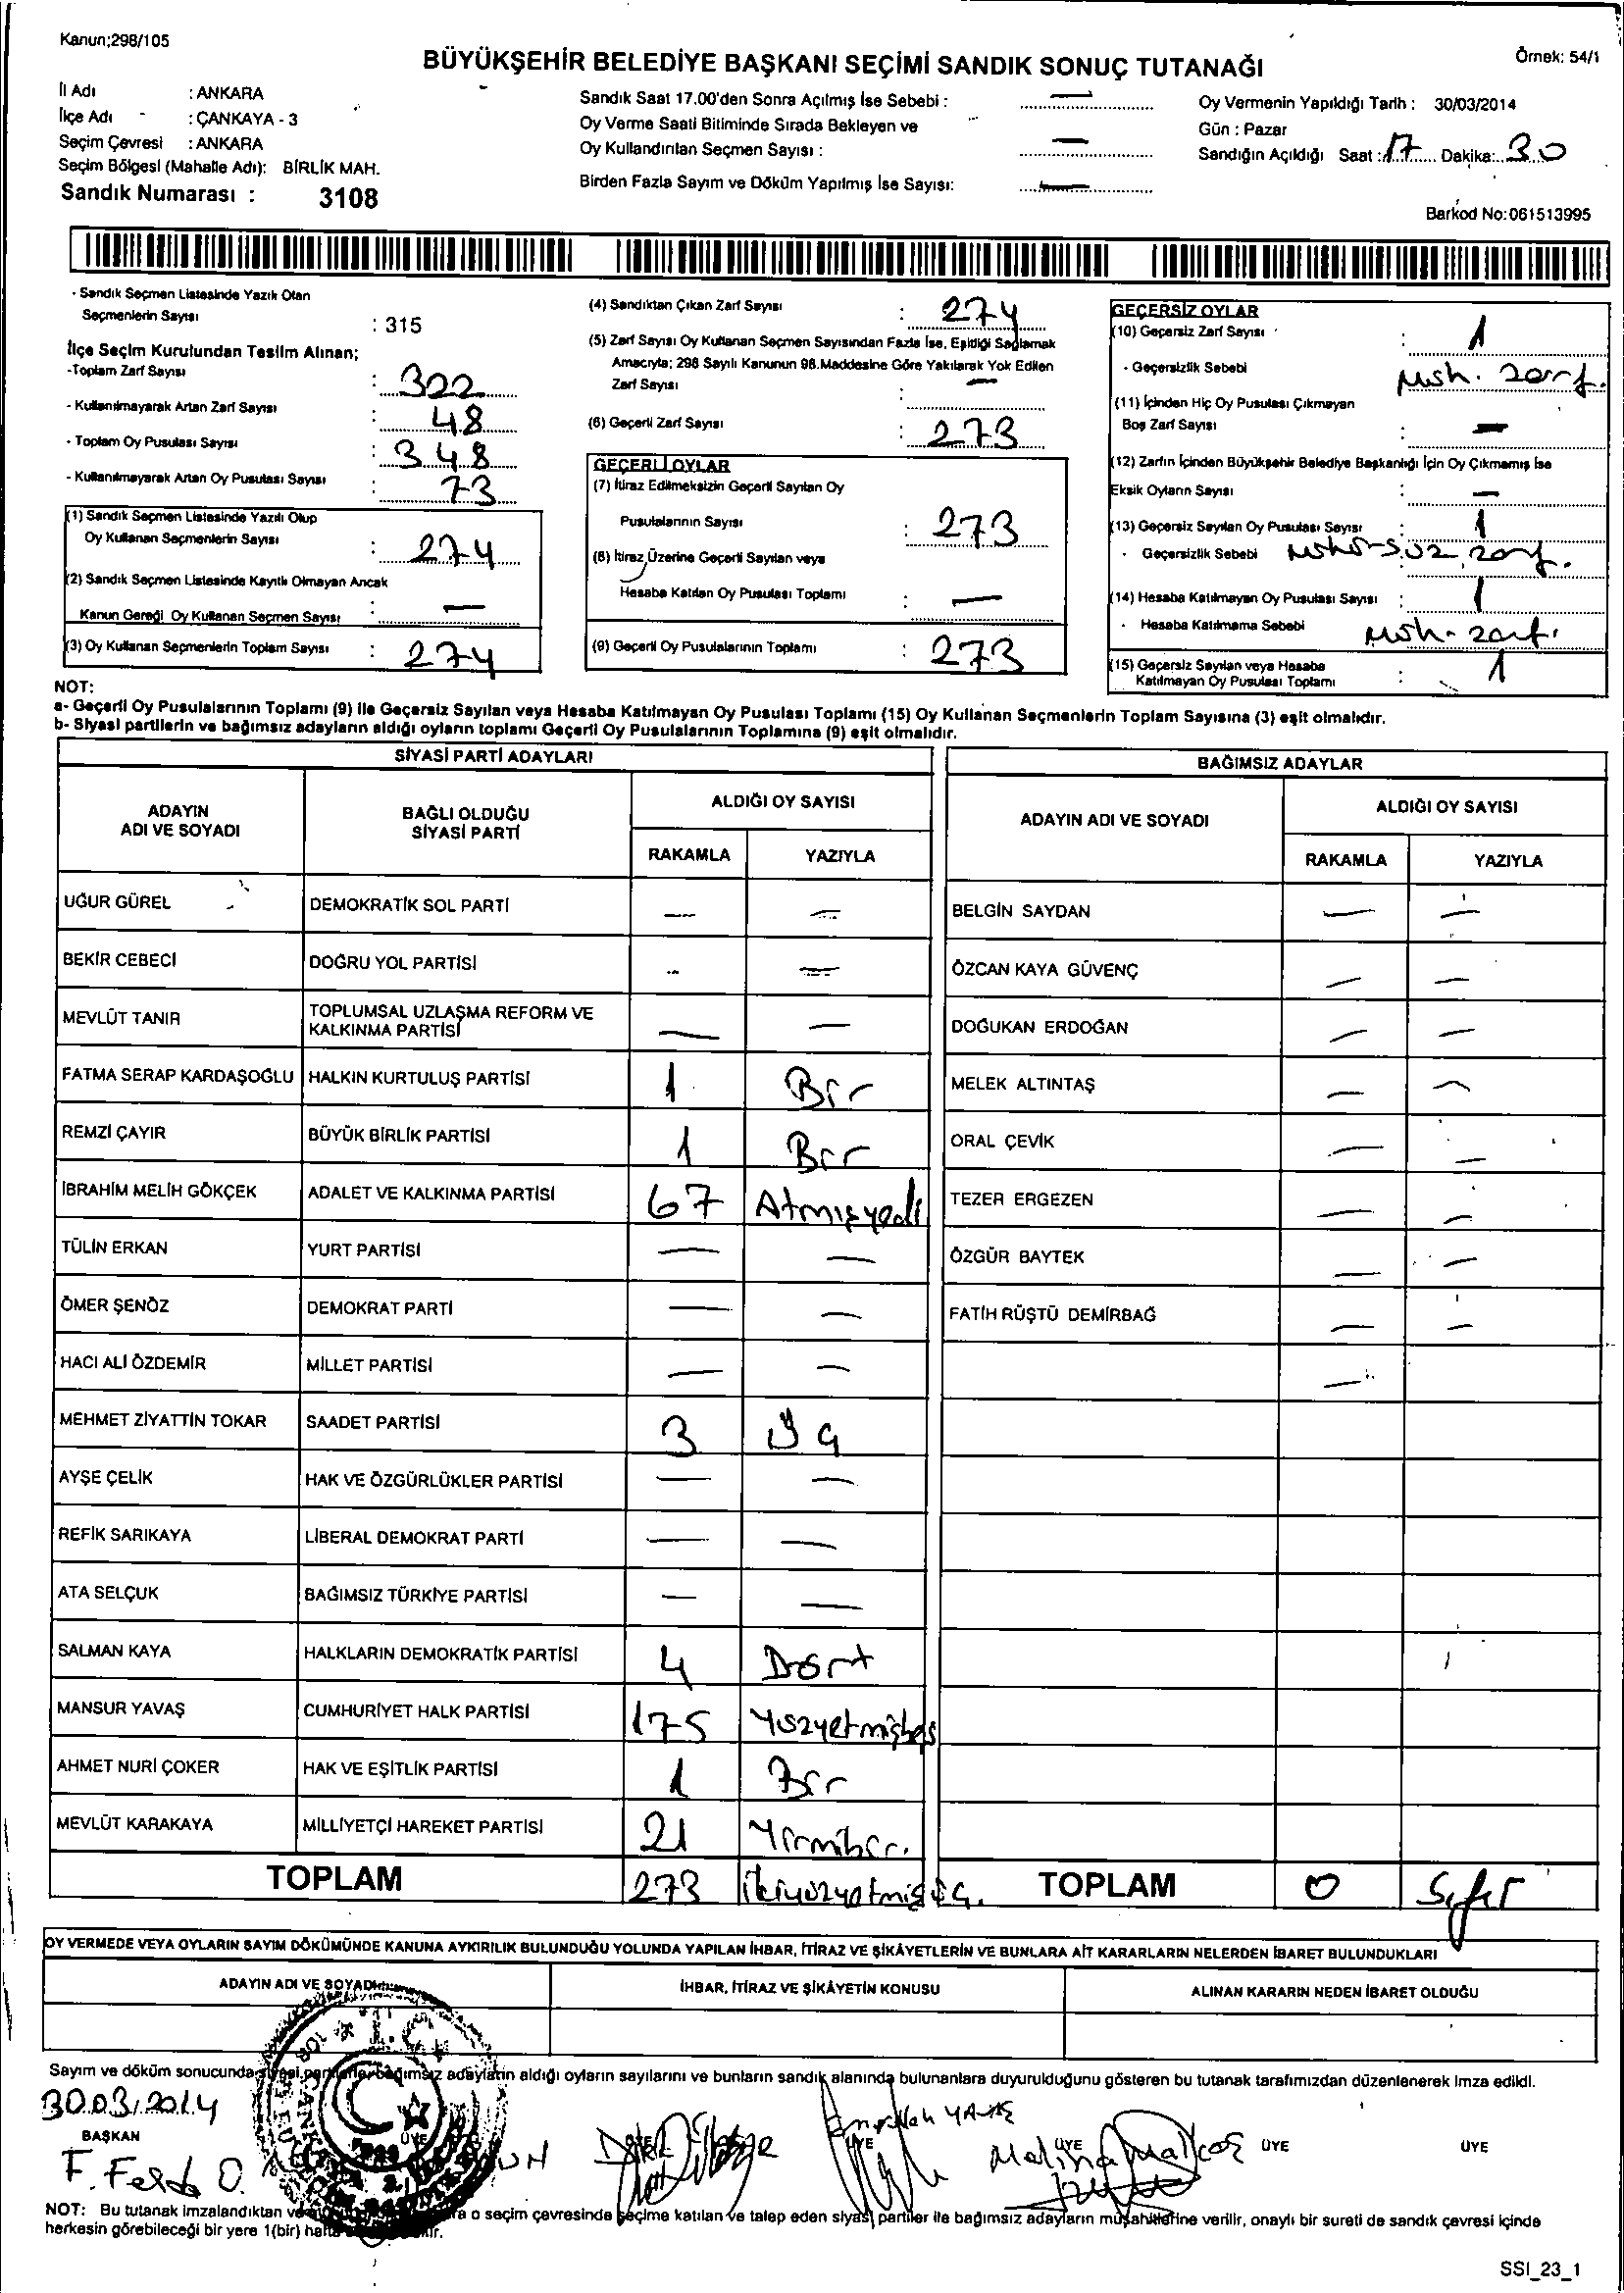 Kanun;298/105
BÜYÜKŞEHİR BELEDİYE BAŞKANI SEÇİMİ SANDIK SONUÇ TUTANAĞI
Örnek: 54/1
İl Adı : ANKARA
İlçe Adı : ÇANKAYA - 3
Seçim Çevresi : ANKARA
Seçim Bölgesi (Mahalle Adı): BİRLİK MAH.
Sandık Numarası : 3108
Sandık Saat 17.00'den Sonra Açılmış İse Sebebi : —
Oy Verme Saati Bitiminde Sırada Bekleyen ve
Oy Kullandırılan Seçmen Sayısı : —
Birden Fazla Sayım ve Döküm Yapılmış İse Sayısı: —
Oy Vermenin Yapıldığı Tarih : 30/03/2014
Gün : Pazar
Sandığın Açıldığı Saat : 17 Dakika: 30
Barkod No:061513995
- Sandık Seçmen Listesinde Yazılı Olan
Seçmenlerin Sayısı : 315
İlçe Seçim Kurulundan Teslim Alınan;
-Toplam Zarf Sayısı : 322
- Kullanılmayarak Artan Zarf Sayısı : 48
- Toplam Oy Pusulası Sayısı : 348
- Kullanılmayarak Artan Oy Pusulası Sayısı : 73
(1) Sandık Seçmen Listesinde Yazılı Olup
Oy Kullanan Seçmenlerin Sayısı : 274
(2) Sandık Seçmen Listesinde Kayıtlı Olmayan Ancak
Kanun Gereği Oy Kullanan Seçmen Sayısı : —
(3) Oy Kullanan Seçmenlerin Toplam Sayısı : 274
(4) Sandıktan Çıkan Zarf Sayısı : 274
(5) Zarf Sayısı Oy Kullanan Seçmen Sayısından Fazla İse, Eşitliği Sağlamak
Amacıyla; 298 Sayılı Kanunun 98.Maddesine Göre Yakılarak Yok Edilen
Zarf Sayısı : —
(6) Geçerli Zarf Sayısı : 273
GEÇERLİ OYLAR
(7) İtiraz Edilmeksizin Geçerli Sayılan Oy
Pusulalarının Sayısı : 273
(8) İtiraz Üzerine Geçerli Sayılan veya
Hesaba Katılan Oy Pusulası Toplamı : —
(9) Geçerli Oy Pusulalarının Toplamı : 273
GEÇERSİZ OYLAR
(10) Geçersiz Zarf Sayısı : 1
- Geçersizlik Sebebi Msh. zarf.
(11) İçinden Hiç Oy Pusulası Çıkmayan
Boş Zarf Sayısı : —
(12) Zarfın İçinden Büyükşehir Belediye Başkanlığı İçin Oy Çıkmamış İse
Eksik Oyların Sayısı : —
(13) Geçersiz Sayılan Oy Pusulası Sayısı : 1
- Geçersizlik Sebebi Mühürsüz zarf.
(14) Hesaba Katılmayan Oy Pusulası Sayısı : 1
- Hesaba Katılmama Sebebi Msh. zarf.
(15) Geçersiz Sayılan veya Hesaba
Katılmayan Oy Pusulası Toplamı : 1
NOT:
a- Geçerli Oy Pusulalarının Toplamı (9) ile Geçersiz Sayılan veya Hesaba Katılmayan Oy Pusulası Toplamı (15) Oy Kullanan Seçmenlerin Toplam Sayısına (3) eşit olmalıdır.
b- Siyasi partilerin ve bağımsız adayların aldığı oyların toplamı Geçerli Oy Pusulalarının Toplamına (9) eşit olmalıdır.
SİYASİ PARTİ ADAYLARI
ADAYIN ADI VE SOYADI BAĞLI OLDUĞU SİYASİ PARTİ ALDIĞI OY SAYISI
RAKAMLA YAZIYLA
UĞUR GÜREL DEMOKRATİK SOL PARTİ — —
BEKİR CEBECİ DOĞRU YOL PARTİSİ — —
MEVLÜT TANIR TOPLUMSAL UZLAŞMA REFORM VE KALKINMA PARTİSİ — —
FATMA SERAP KARDAŞOĞLU HALKIN KURTULUŞ PARTİSİ 1 Bir
REMZİ ÇAYIR BÜYÜK BİRLİK PARTİSİ 1 Bir
İBRAHİM MELİH GÖKÇEK ADALET VE KALKINMA PARTİSİ 67 Atmışyedi
TÜLİN ERKAN YURT PARTİSİ — —
ÖMER ŞENÖZ DEMOKRAT PARTİ — —
HACI ALİ ÖZDEMİR MİLLET PARTİSİ — —
MEHMET ZİYATTİN TOKAR SAADET PARTİSİ 3 Üç
AYŞE ÇELİK HAK VE ÖZGÜRLÜKLER PARTİSİ — —
REFİK SARIKAYA LİBERAL DEMOKRAT PARTİ — —
ATA SELÇUK BAĞIMSIZ TÜRKİYE PARTİSİ — —
SALMAN KAYA HALKLARIN DEMOKRATİK PARTİSİ 4 Dört
MANSUR YAVAŞ CUMHURİYET HALK PARTİSİ 175 Yüzyetmişbeş
AHMET NURİ ÇOKER HAK VE EŞİTLİK PARTİSİ 1 Bir
MEVLÜT KARAKAYA MİLLİYETÇİ HAREKET PARTİSİ 21 Yirmibir.
TOPLAM 273 İkiyüzyetmişüç.
BAĞIMSIZ ADAYLAR
ADAYIN ADI VE SOYADI ALDIĞI OY SAYISI
RAKAMLA YAZIYLA
BELGİN SAYDAN — —
ÖZCAN KAYA GÜVENÇ — —
DOĞUKAN ERDOĞAN — —
MELEK ALTINTAŞ — —
ORAL ÇEVİK — —
TEZER ERGEZEN — —
ÖZGÜR BAYTEK — —
FATİH RÜŞTÜ DEMİRBAĞ — —
TOPLAM 0 Sıfır
OY VERMEDE VEYA OYLARIN SAYIM DÖKÜMÜNDE KANUNA AYKIRILIK BULUNDUĞU YOLUNDA YAPILAN İHBAR, İTİRAZ VE ŞİKÂYETLERİN VE BUNLARA AİT KARARLARIN NELERDEN İBARET BULUNDUKLARI
ADAYIN ADI VE SOYADI İHBAR, İTİRAZ VE ŞİKÂYETİN KONUSU ALINAN KARARIN NEDEN İBARET OLDUĞU
Sayım ve döküm sonucunda siyasi partilerle bağımsız adayların aldığı oyların sayılarını ve bunların sandık alanında bulunanlara duyurulduğunu gösteren bu tutanak tarafımızdan düzenlenerek imza edildi.
30.03.2014
BAŞKAN ÜYE ÜYE ÜYE ÜYE ÜYE
F. Feda O.
NOT: Bu tutanak imzalandıktan o seçim çevresinde seçime katılan ve talep eden siyasi partiler ile bağımsız adayların müşahitlerine verilir, onaylı bir sureti de sandık çevresi içinde
herkesin görebileceği bir yere 1(bir) hafta
SSI_23_1